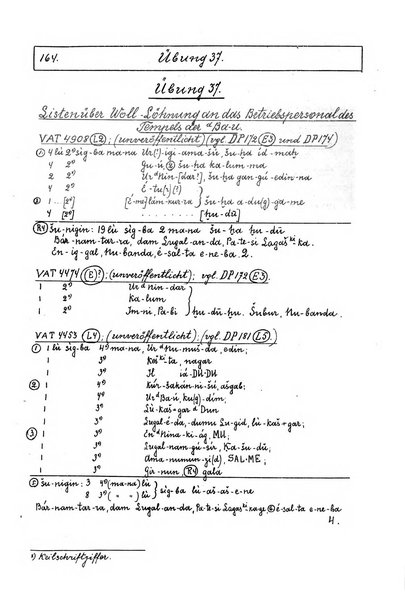 164. Übung 37.
Übung 37.
Listen über Woll-Löhnung an das Betriebspersonal des
Tempels der ᵈBa-u.
VAT 4908 (L2); (unveröffentlicht) (vgl. DP 172 (E3) und DP 174)
① 4 lù 2⁰ sig-ba ma-na Ur(?)-igi-ama-šù, šu-ḫa id-maḫ
4 2⁰ Gu-ú, ② šu-ḫa ka-lum-ma
2 2⁰ Ur ᵈNin-[dar?], šu-ḫa gan-gú-edin-na
4 2⁰ É-tu(?)(?)
② 1 .. [2⁰] [É-me]lám-kur-ra } šu-ḫa a-du(g)-ga-me
4 [2⁰] ........ [ḫu-dū]
(R4) šu-nigin: 19 lù sig-ba 2 mana šu-ḫa ḫu-dū
Bár-nam-tar-ra, dam Lugal-an-da, Pa-te-si Lagaš ᵏⁱ ka
En-ig-gal, Nu-banda, é-sal-ta e-ne-ba 2.
VAT 4474 (E?); (unveröffentlicht); vgl. DP 172 (E3).
1 2⁰ Ur ᵈnin-dar
1 2⁰ Ka-lum
1 2⁰ Im-ni, Pa-bi } ḫu-dū-ḫu. Šubur, Nu-banda.
VAT 4453 (L4); (unveröffentlicht); (vgl. DP 181 (L5)
① 1 lù sig-ba 4⁰ mana, Ur ᵈNu-muš-da, edin;
1 3⁰ Kaš ᵏⁱ-ta, nagar
1 3⁰ Il íá-DU-DU
② 1 4⁰ Kúr-šakán-ni-šú, ašgab;
1 4⁰ Ur ᵈBa-ú, ku(g)-dím;
1 3⁰ Lù-kaš-gar ᵈ Dun
1 3⁰ Lugal-é-da, dumu Lu-gid, lù-kaš+gar;
③ 1 3⁰ En ᵈNina-ki-ág, MU;
1 3⁰ Lugal-nam-gú-sir, Ka-šu-dū;
1 3⁰ Ama-numun-zi(d), SAL-ME;
1 3⁰ Gir-nun (R4) gala
① šu-nigin: 3 4⁰(ma-na) lù
8 3⁰( " " ) lù } sig-ba lù-aš-aš-e-ne
Bár-nam-tar-ra, dam Lugal-an-da, Pa-te-si Lagaš ᵏⁱ-ka-ge, ② é-sal-ta e-ne-ba
4.
¹) Keilschriftziffer.